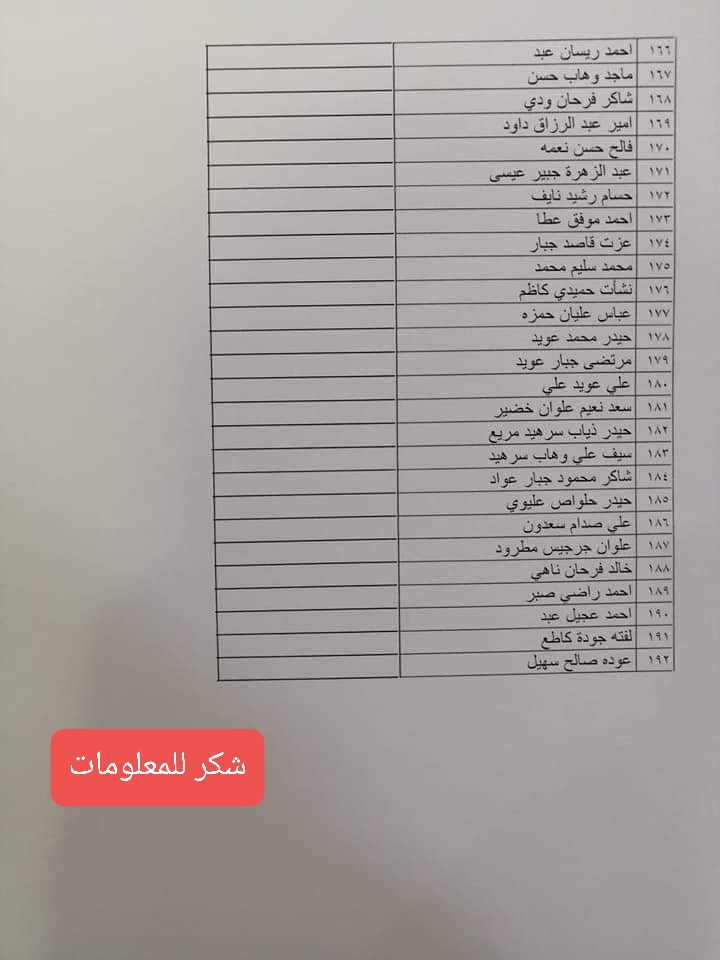 ١٦٦ احمد ريسان عبد
١٦٧ ماجد وهاب حسن
١٦٨ شاكر فرحان ودي
١٦٩ امير عبد الرزاق داود
١٧٠ فالح حسن نعمه
١٧١ عبد الزهرة جبير عيسى
١٧٢ حسام رشيد نايف
١٧٣ احمد موفق عطا
١٧٤ عزت قاصد جبار
١٧٥ محمد سليم محمد
١٧٦ نشأت حميدي كاظم
١٧٧ عباس عليان حمزه
١٧٨ حيدر محمد عويد
١٧٩ مرتضى جبار عويد
١٨٠ علي عويد علي
١٨١ سعد نعيم علوان خضير
١٨٢ حيدر ذياب سرهيد مريع
١٨٣ سيف علي وهاب سرهيد
١٨٤ شاكر محمود جبار عواد
١٨٥ حيدر حلواص عليوي
١٨٦ علي صدام سعدون
١٨٧ علوان جرجيس مطرود
١٨٨ خالد فرحان ناهي
١٨٩ احمد راضي صبر
١٩٠ احمد عجيل عبد
١٩١ لفته جودة كاطع
١٩٢ عوده صالح سهيل
شكر للمعلومات